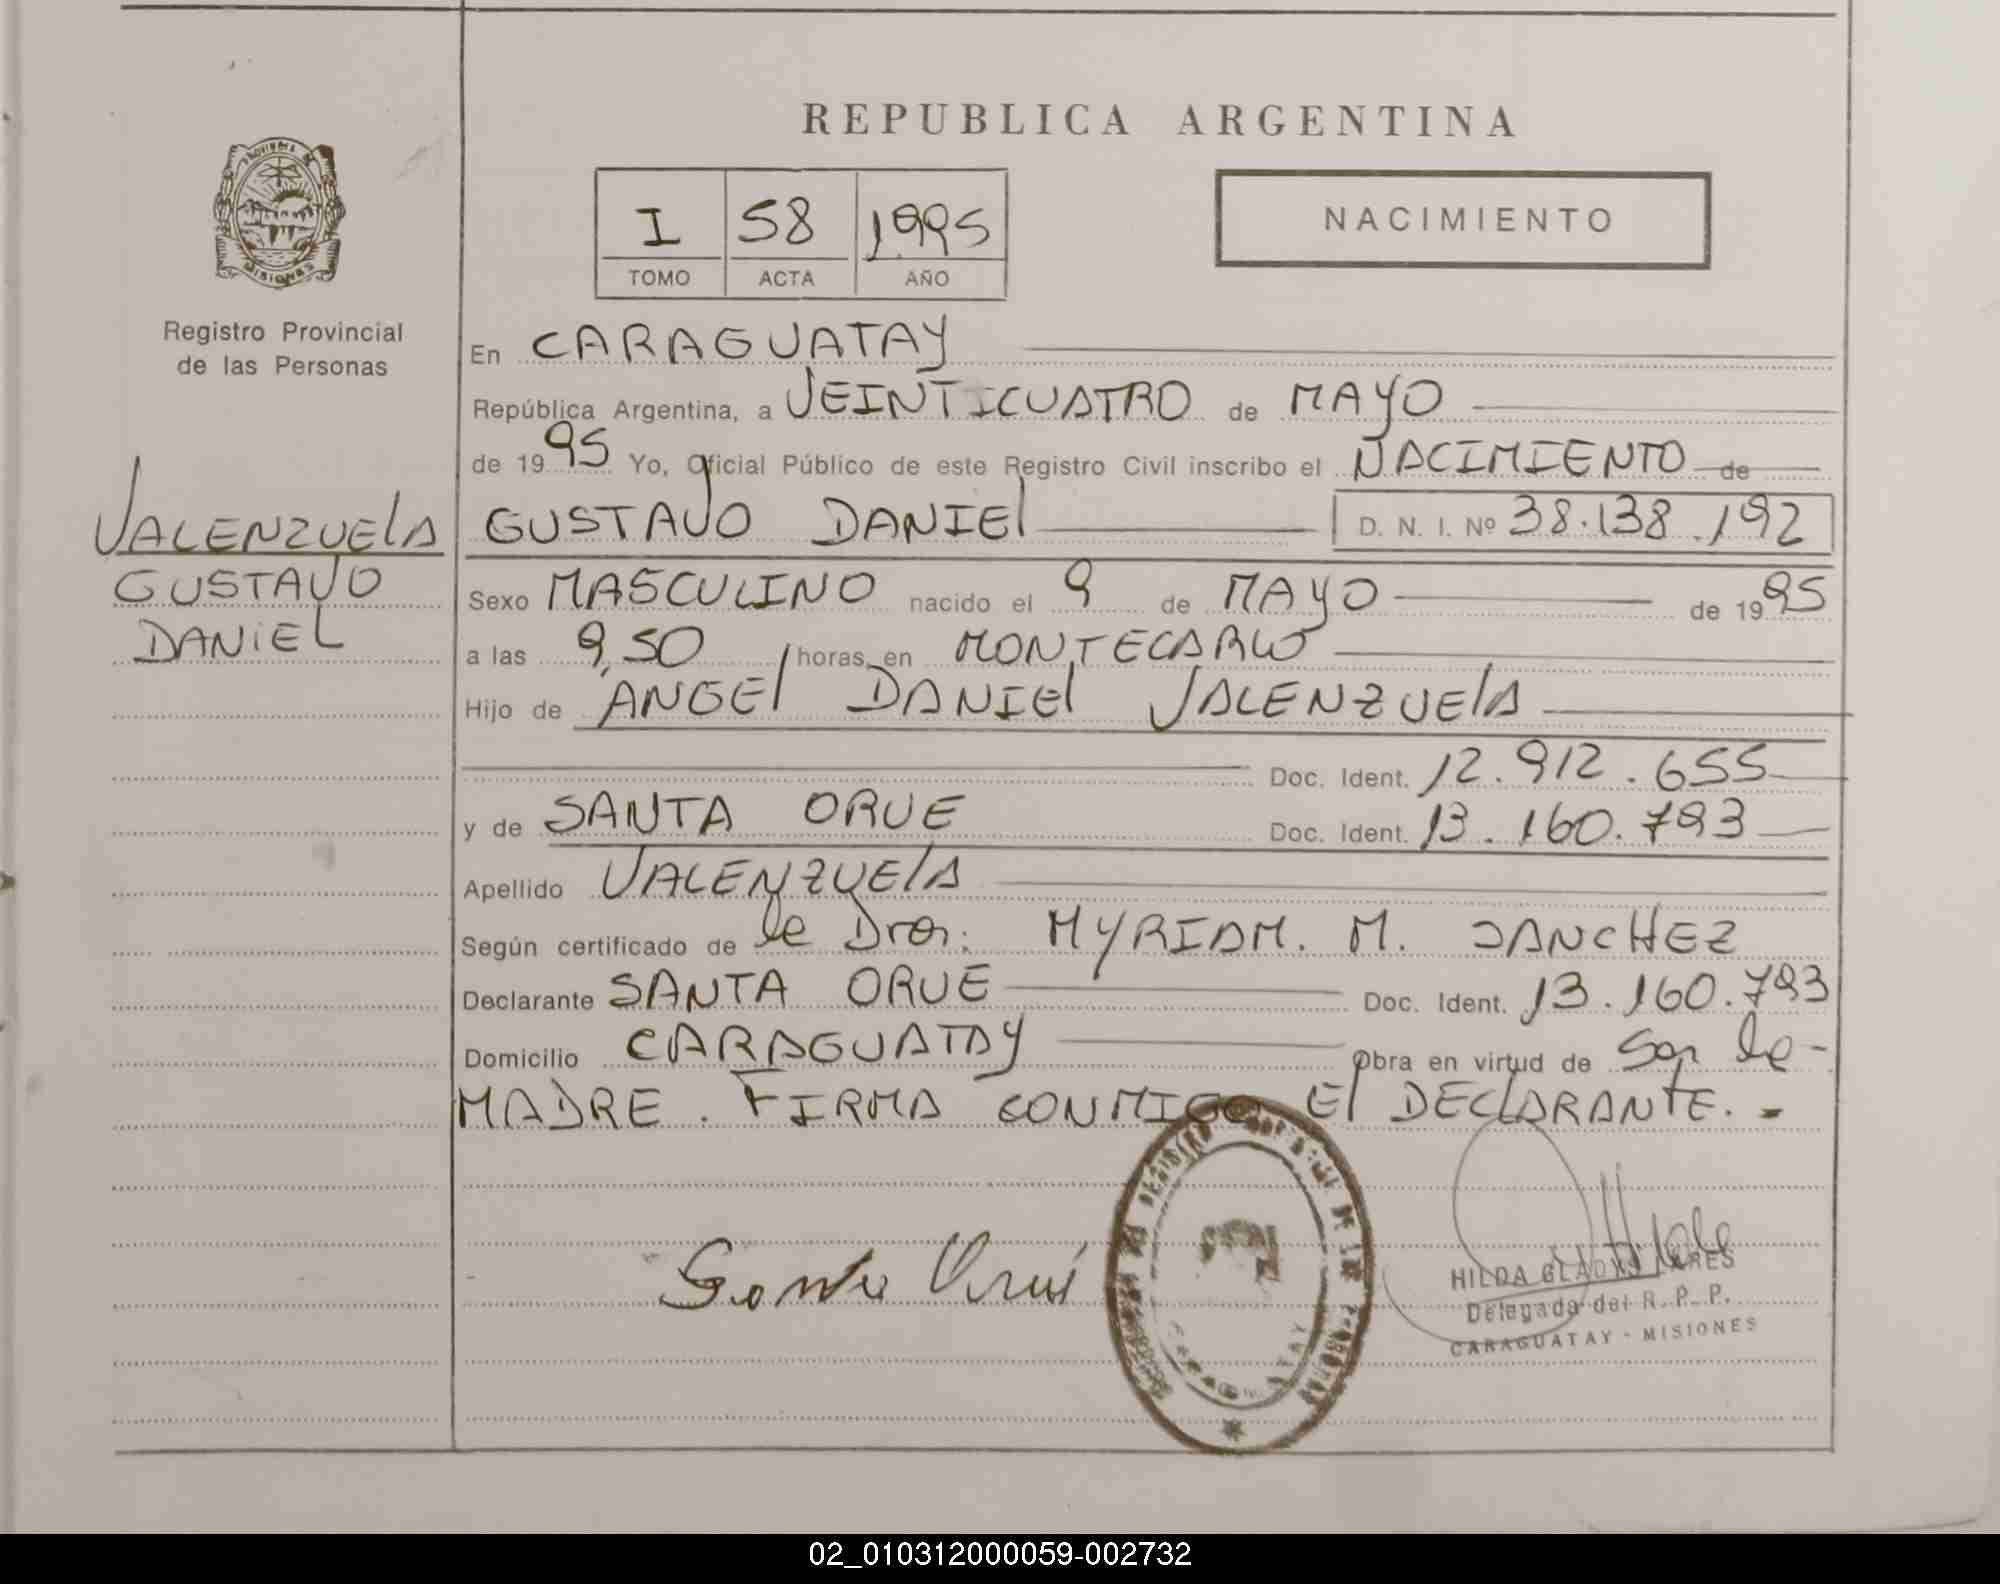 REPUBLICA ARGENTINA
PROVINCIA DE
MISIONES
Registro Provincial
de las Personas
I 58 1995
TOMO ACTA AÑO
NACIMIENTO
VALENZUELA
GUSTAVO
DANIEL
En CARAGUATAY
República Argentina, a VEINTICUATRO de MAYO
de 1995 Yo, Oficial Público de este Registro Civil inscribo el NACIMIENTO de
GUSTAVO DANIEL D. N. I. Nº 38.138.192
Sexo MASCULINO nacido el 9 de MAYO de 1995
a las 9,50 horas, en MONTECARLO
Hijo de ANGEL DANIEL VALENZUELA
Doc. Ident. 12.912.655
y de SANTA ORUE Doc. Ident. 13.160.793
Apellido VALENZUELA
Según certificado de la Dra. MYRIAM. M. SANCHEZ
Declarante SANTA ORUE Doc. Ident. 13.160.793
Domicilio CARAGUATAY Obra en virtud de ser la
MADRE. FIRMA CONMIGO El DECLARANTE.-
Santa Orué
HILDA GLADYS
Delegada del R. P. P.
CARAGUATAY - MISIONES
02_010312000059-002732